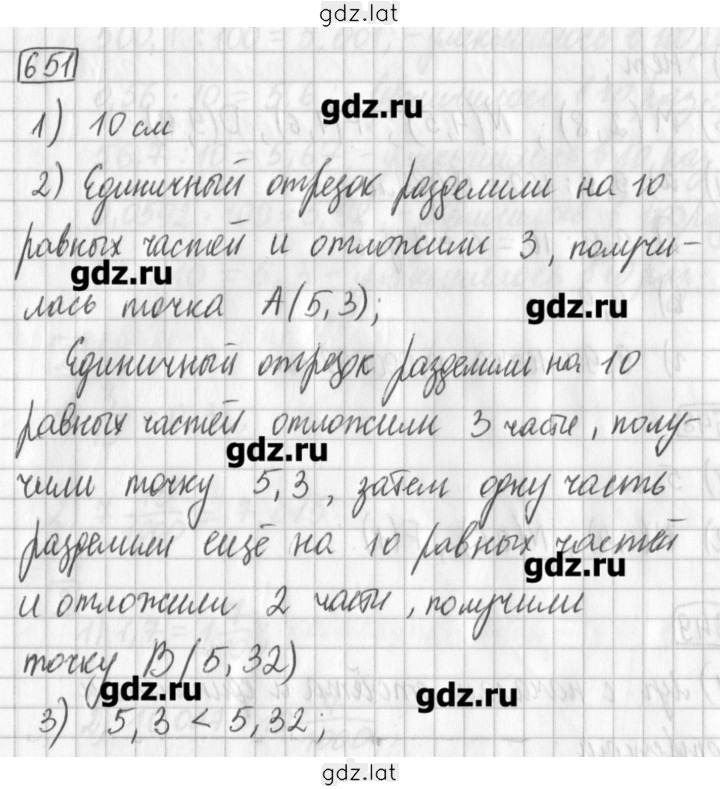 gdz.lat
651
gdz.ru
1) 10 см
2) Единичный отрезок разделили на 10
равных частей и отложили 3, получи-
gdz.ru
лась точка А(5,3);
gdz.ru
Единичный отрезок разделили на 10
равных частей отложили 3 части, полу-
gdz.ru
чили точку 5,3, затем одну часть
разделили ещё на 10 равных частей
gdz.ru
и отложили 2 части, получили
точку В(5,32)
gdz.ru
gdz.ru
3) 5,3 < 5,32;
gdz.lat